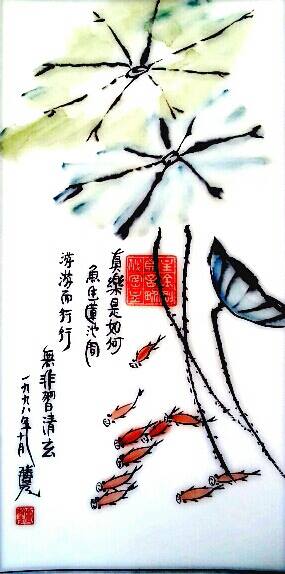 真樂是如何
魚生蓮池間
游游而行行
無非習清玄
一九九八年十月